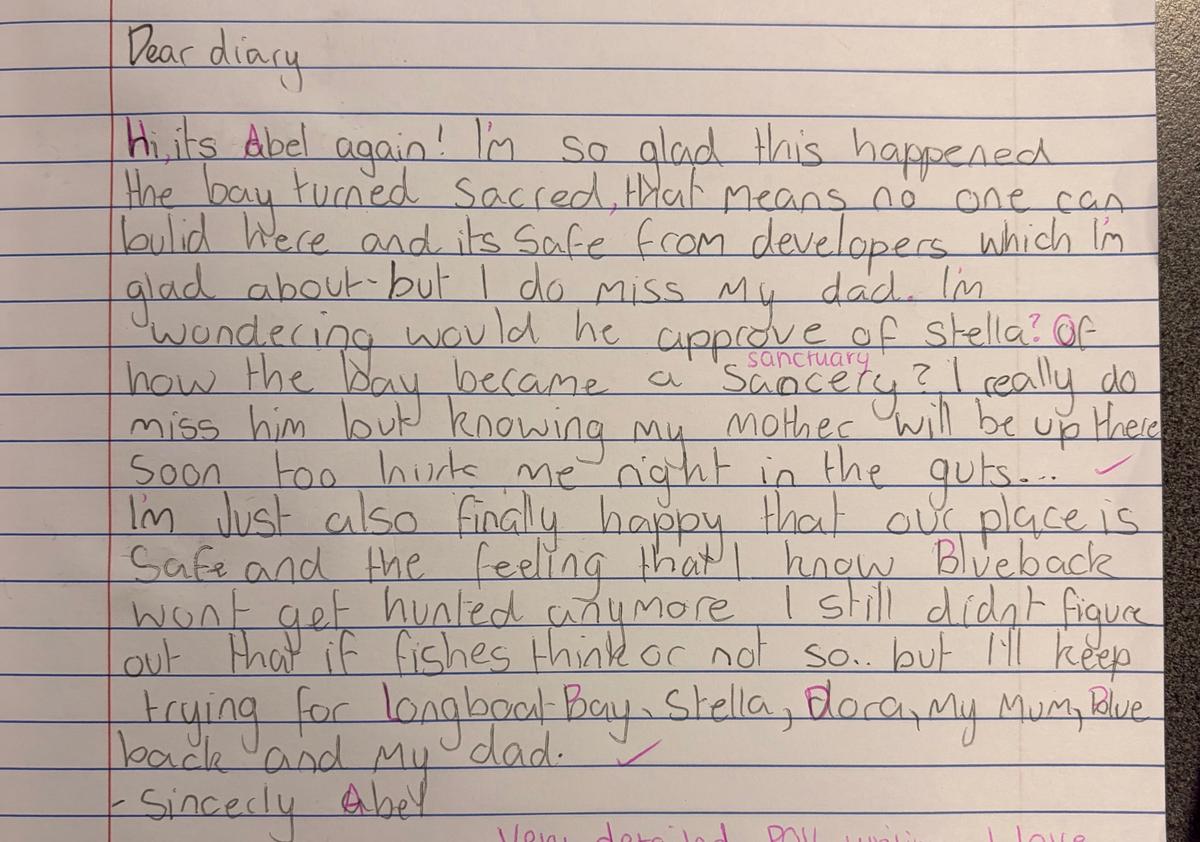 Dear diary
Hi, its Abel again! I'm so glad this happened
the bay turned sacred, that means no one can
bulid here and its safe from developers which I'm
glad about-but I do miss my dad. I'm
wondering would he approve of stella? Of
sanctuary
how the bay became a sancery? I really do
miss him but knowing my mother will be up there
soon too hurts me right in the guts... ✓
I'm Just also finally happy that our place is
safe and the feeling that I know Blueback
wont get hunted anymore I still didnt figure
out that if fishes think or not so.. but I'll keep
trying for Longboat Bay, Stella, Dora, my mum, Blue
back and my dad. ✓
- Sincerly Abel
Very detailed I love